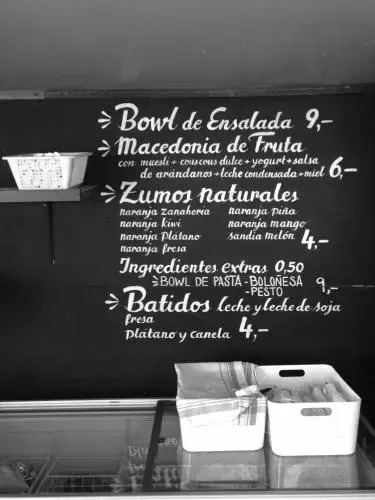 Bowl de Ensalada 9,-
Macedonia de Fruta
con muesli + couscous dulce + yogurt + salsa
de arándanos + leche condensada + miel 6,-
Zumos naturales
naranja zanahoria naranja piña
naranja kiwi naranja mango
naranja plátano sandía melón 4,-
naranja fresa
Ingredientes extras 0,50
BOWL DE PASTA - BOLOÑESA 9,-
- PESTO
Batidos leche y leche de soja
fresa
Plátano y canela 4,-